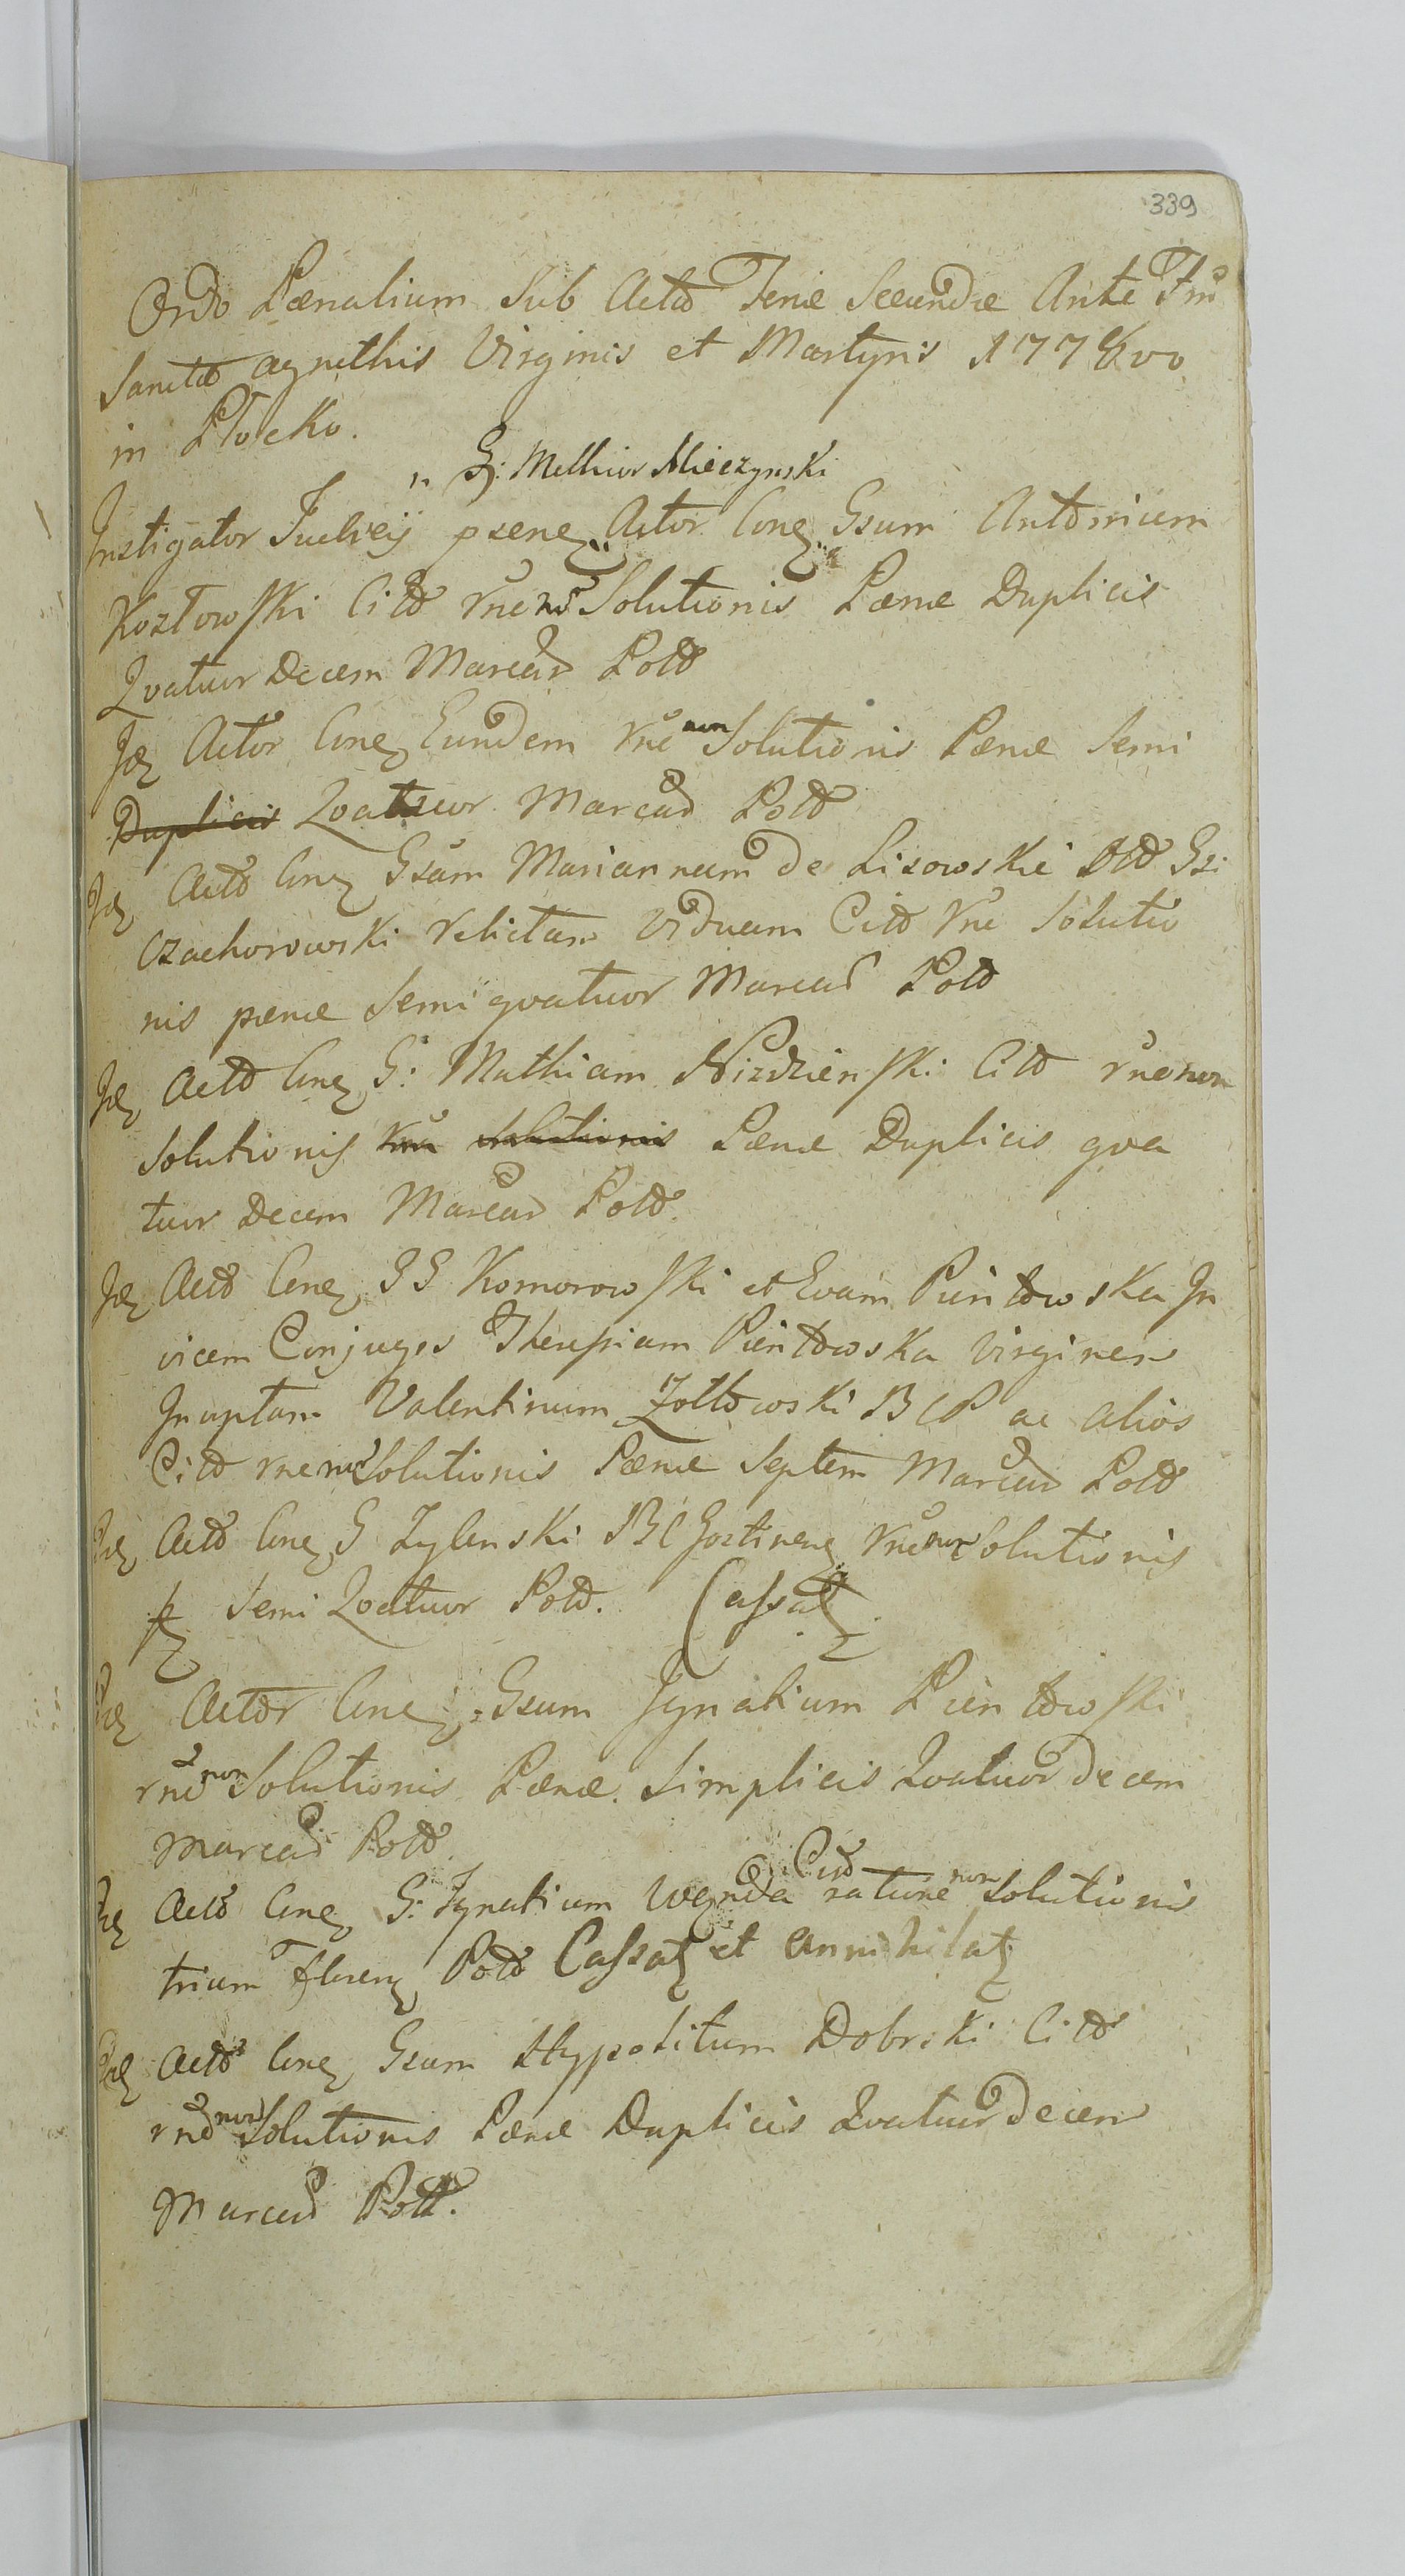 339
Ordo Pænalium Sub Actu Feriæ Secundæ Ante Ftm
Sanctæ agnethis Virginis et Martyris 1778vo
in Płocko.
„ G: Melhior Mieczynski
Instigator Judicij psenς Actor Conς Gsum Antonium
Kozłowski Citō rne non Solutionis Pænæ Duplicis
Qvatuor Decem Marcar Polō
Idς Actor Conς Eundem rne non Solutionis Pænæ Semi
Duplicis Qvatuor Marcar Polō
Idς Actō Conς Gsam Mariannam de Lisowskie Olō Gsi
Czachorowski relictam viduam Citō rne Solutio
nis pænæ Semi qvatuor Marcar Polō
Idς Actō Conς G: Mathiam Nizdzienski Citō rne non
Solutionis rne Solutionis Pænæ Duplicis qva
tuor Decem Marcar Polō.
Idς Actō Conς GG Komorowski et Evam Pientowska In
vicem Conjuges Theresiam Pientowska Virginem
Inuptam Valentinum Zołtowski BCP ac alios
Citō rne non Solutionis Pænæ Septem Marcar Polō
Idς Actō Conς G Zylenski BCGostinenς rne non Solutionis
pς Semi Qvatuor Polō. Cassatς
Idς Actor Conς Gsum Ignatium Pientowski
rne non Solutionis Pænæ Simplicis Qvatuor decem
Marcar Polō.
Citō
Idς Actō Conς G: Ignatium Węnda ratione non Solutionis
trium florenς Polō Cassatς et annihilatς
Idς Actō Conς Gsum Hyppolitum Dobrski Citō
rne non Solutionis Pænæ Duplicis Qvatuor decem
Marcar Polō.